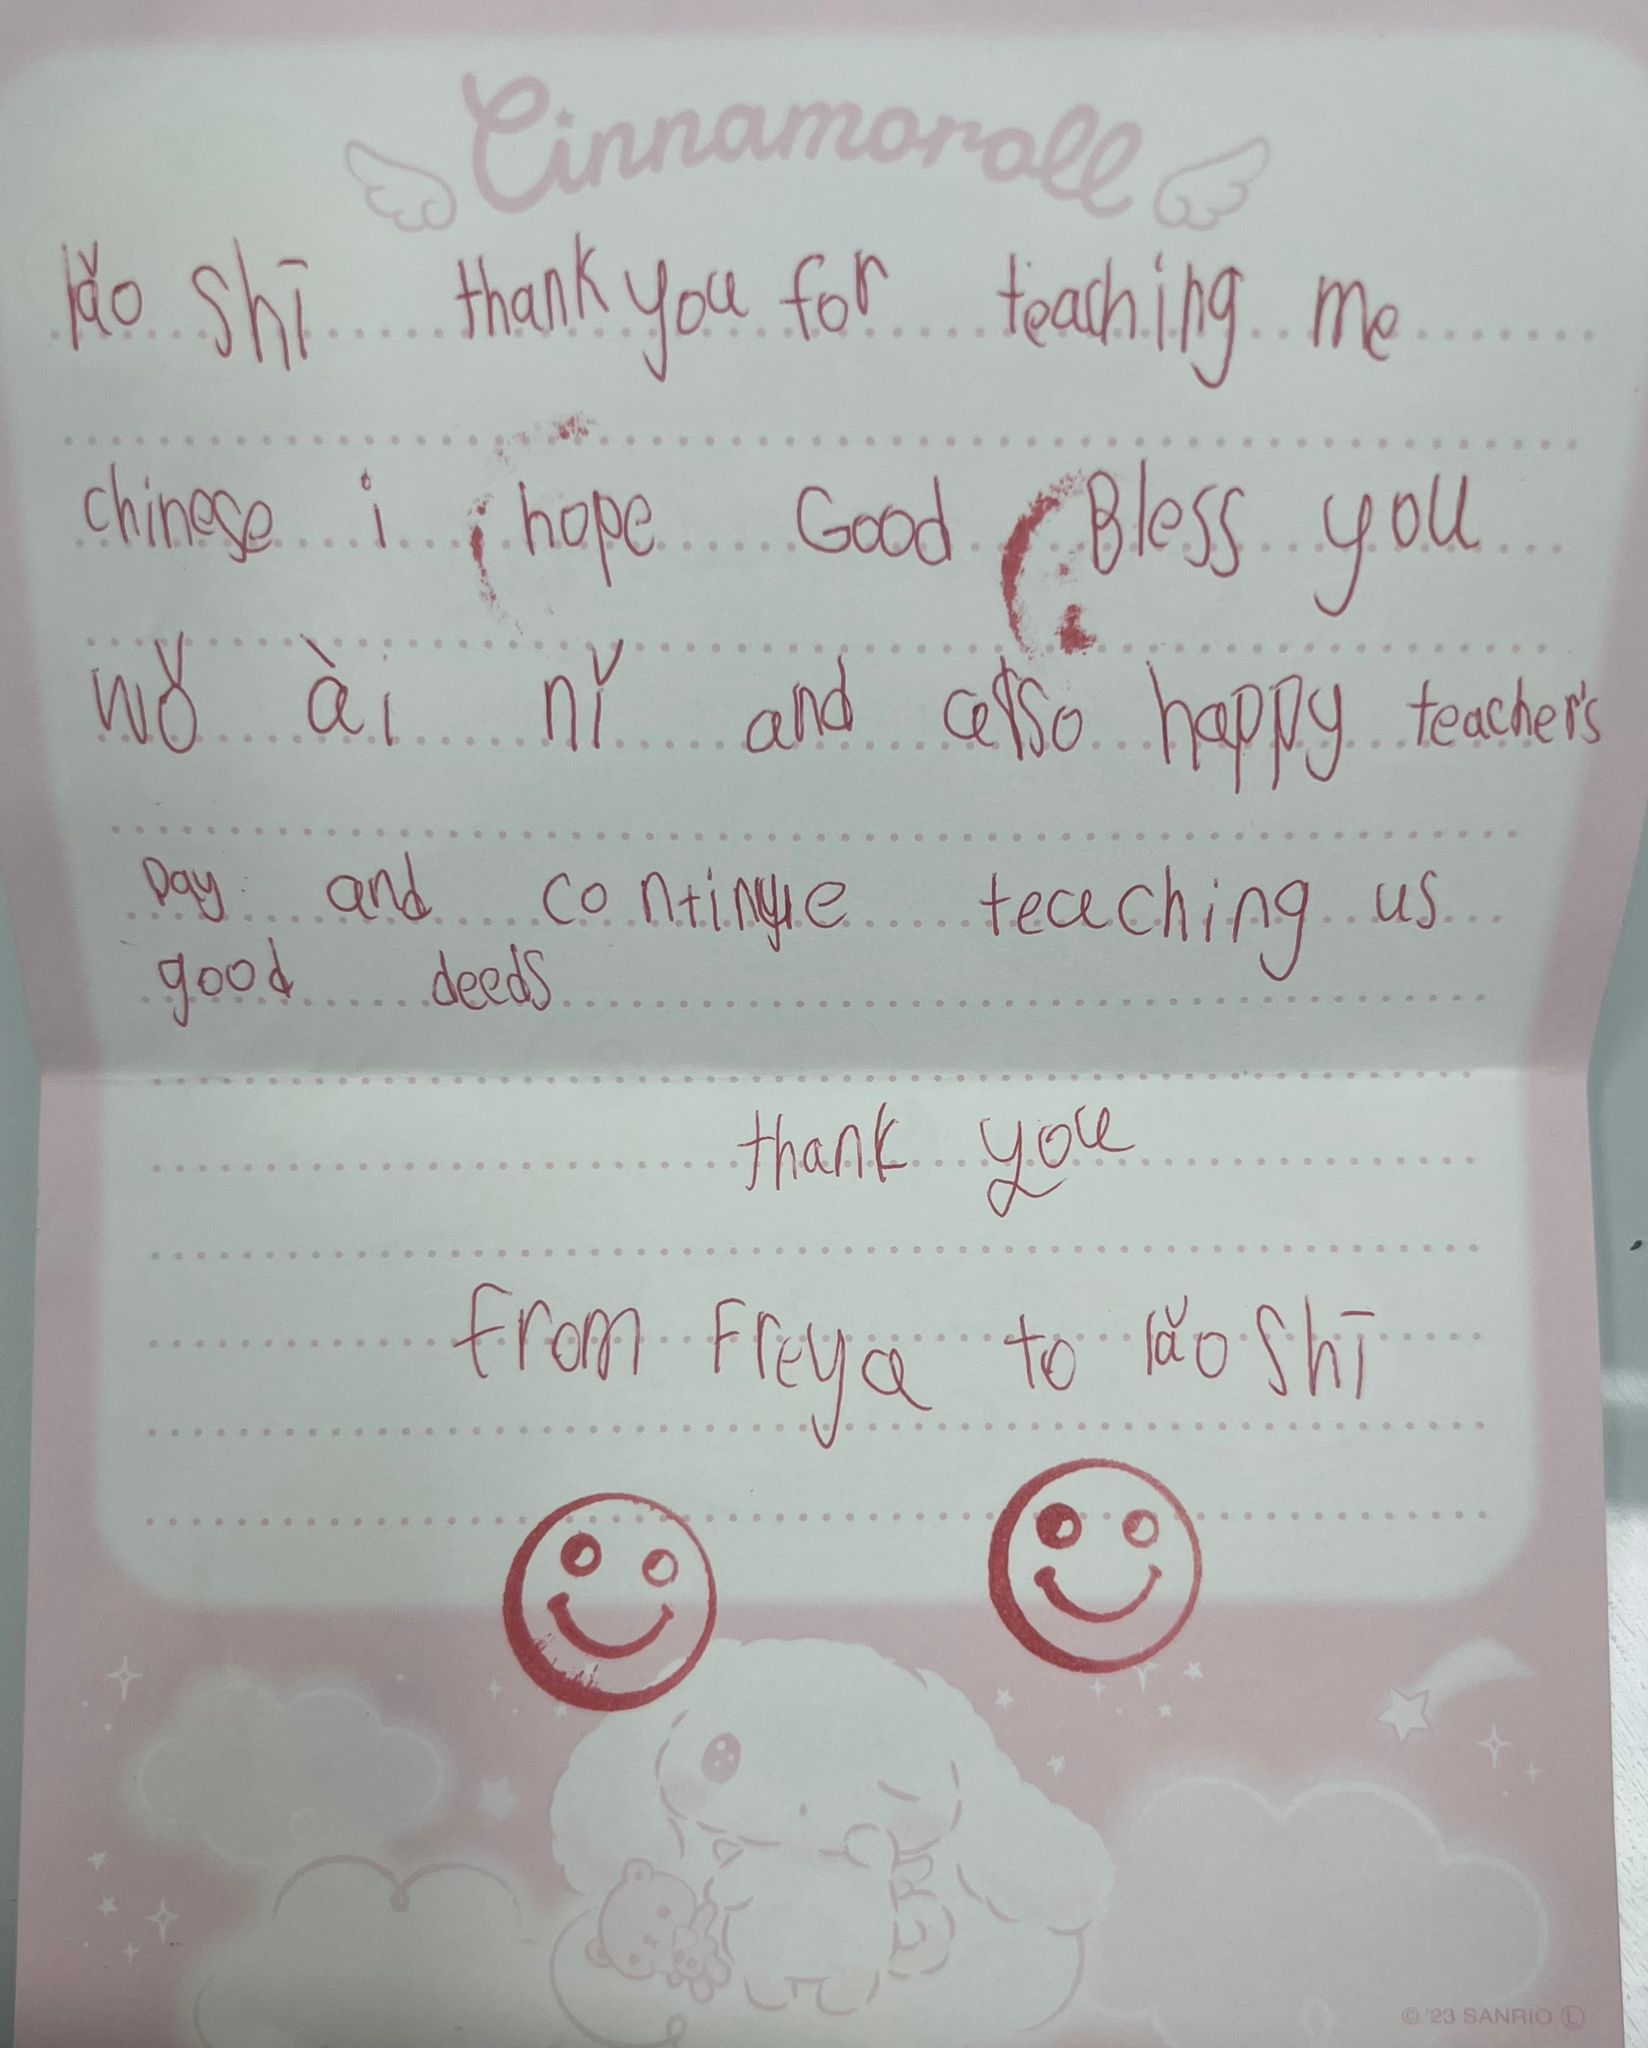 Cinnamoroll
lǎo shī thank you for teaching me
chinese i hope Good Bless you
wǒ ài nǐ and also happy teacher's
Day and continue teaching us
good deeds
thank you
from Freya to lǎo shī
© '23 SANRIO Ⓛ